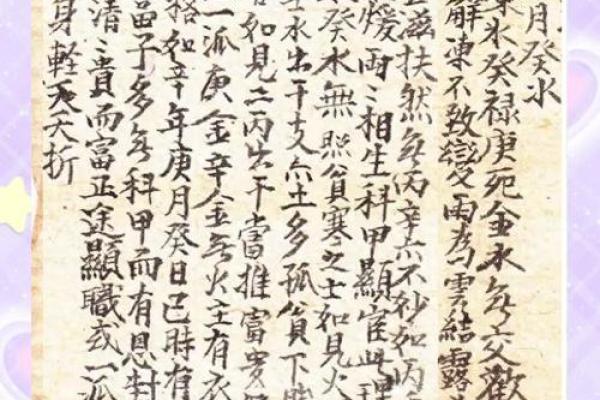 月癸水
癸禄庚死金水无交歡
解凍不致變雨為雲結露
滋扶然无丙辛亦不妙如丙
煖両〻相生科甲顯宦此理
癸水無照貧寒之士如見火
水出干支亦土多孤貧下
如見二丙出干當推富貴
一派庚金辛金无火主有衣
格如辛年庚月癸日巳時有
富子多无科甲而有恩封
清〻貴而富正途顯職或一派
身軽夭夭折